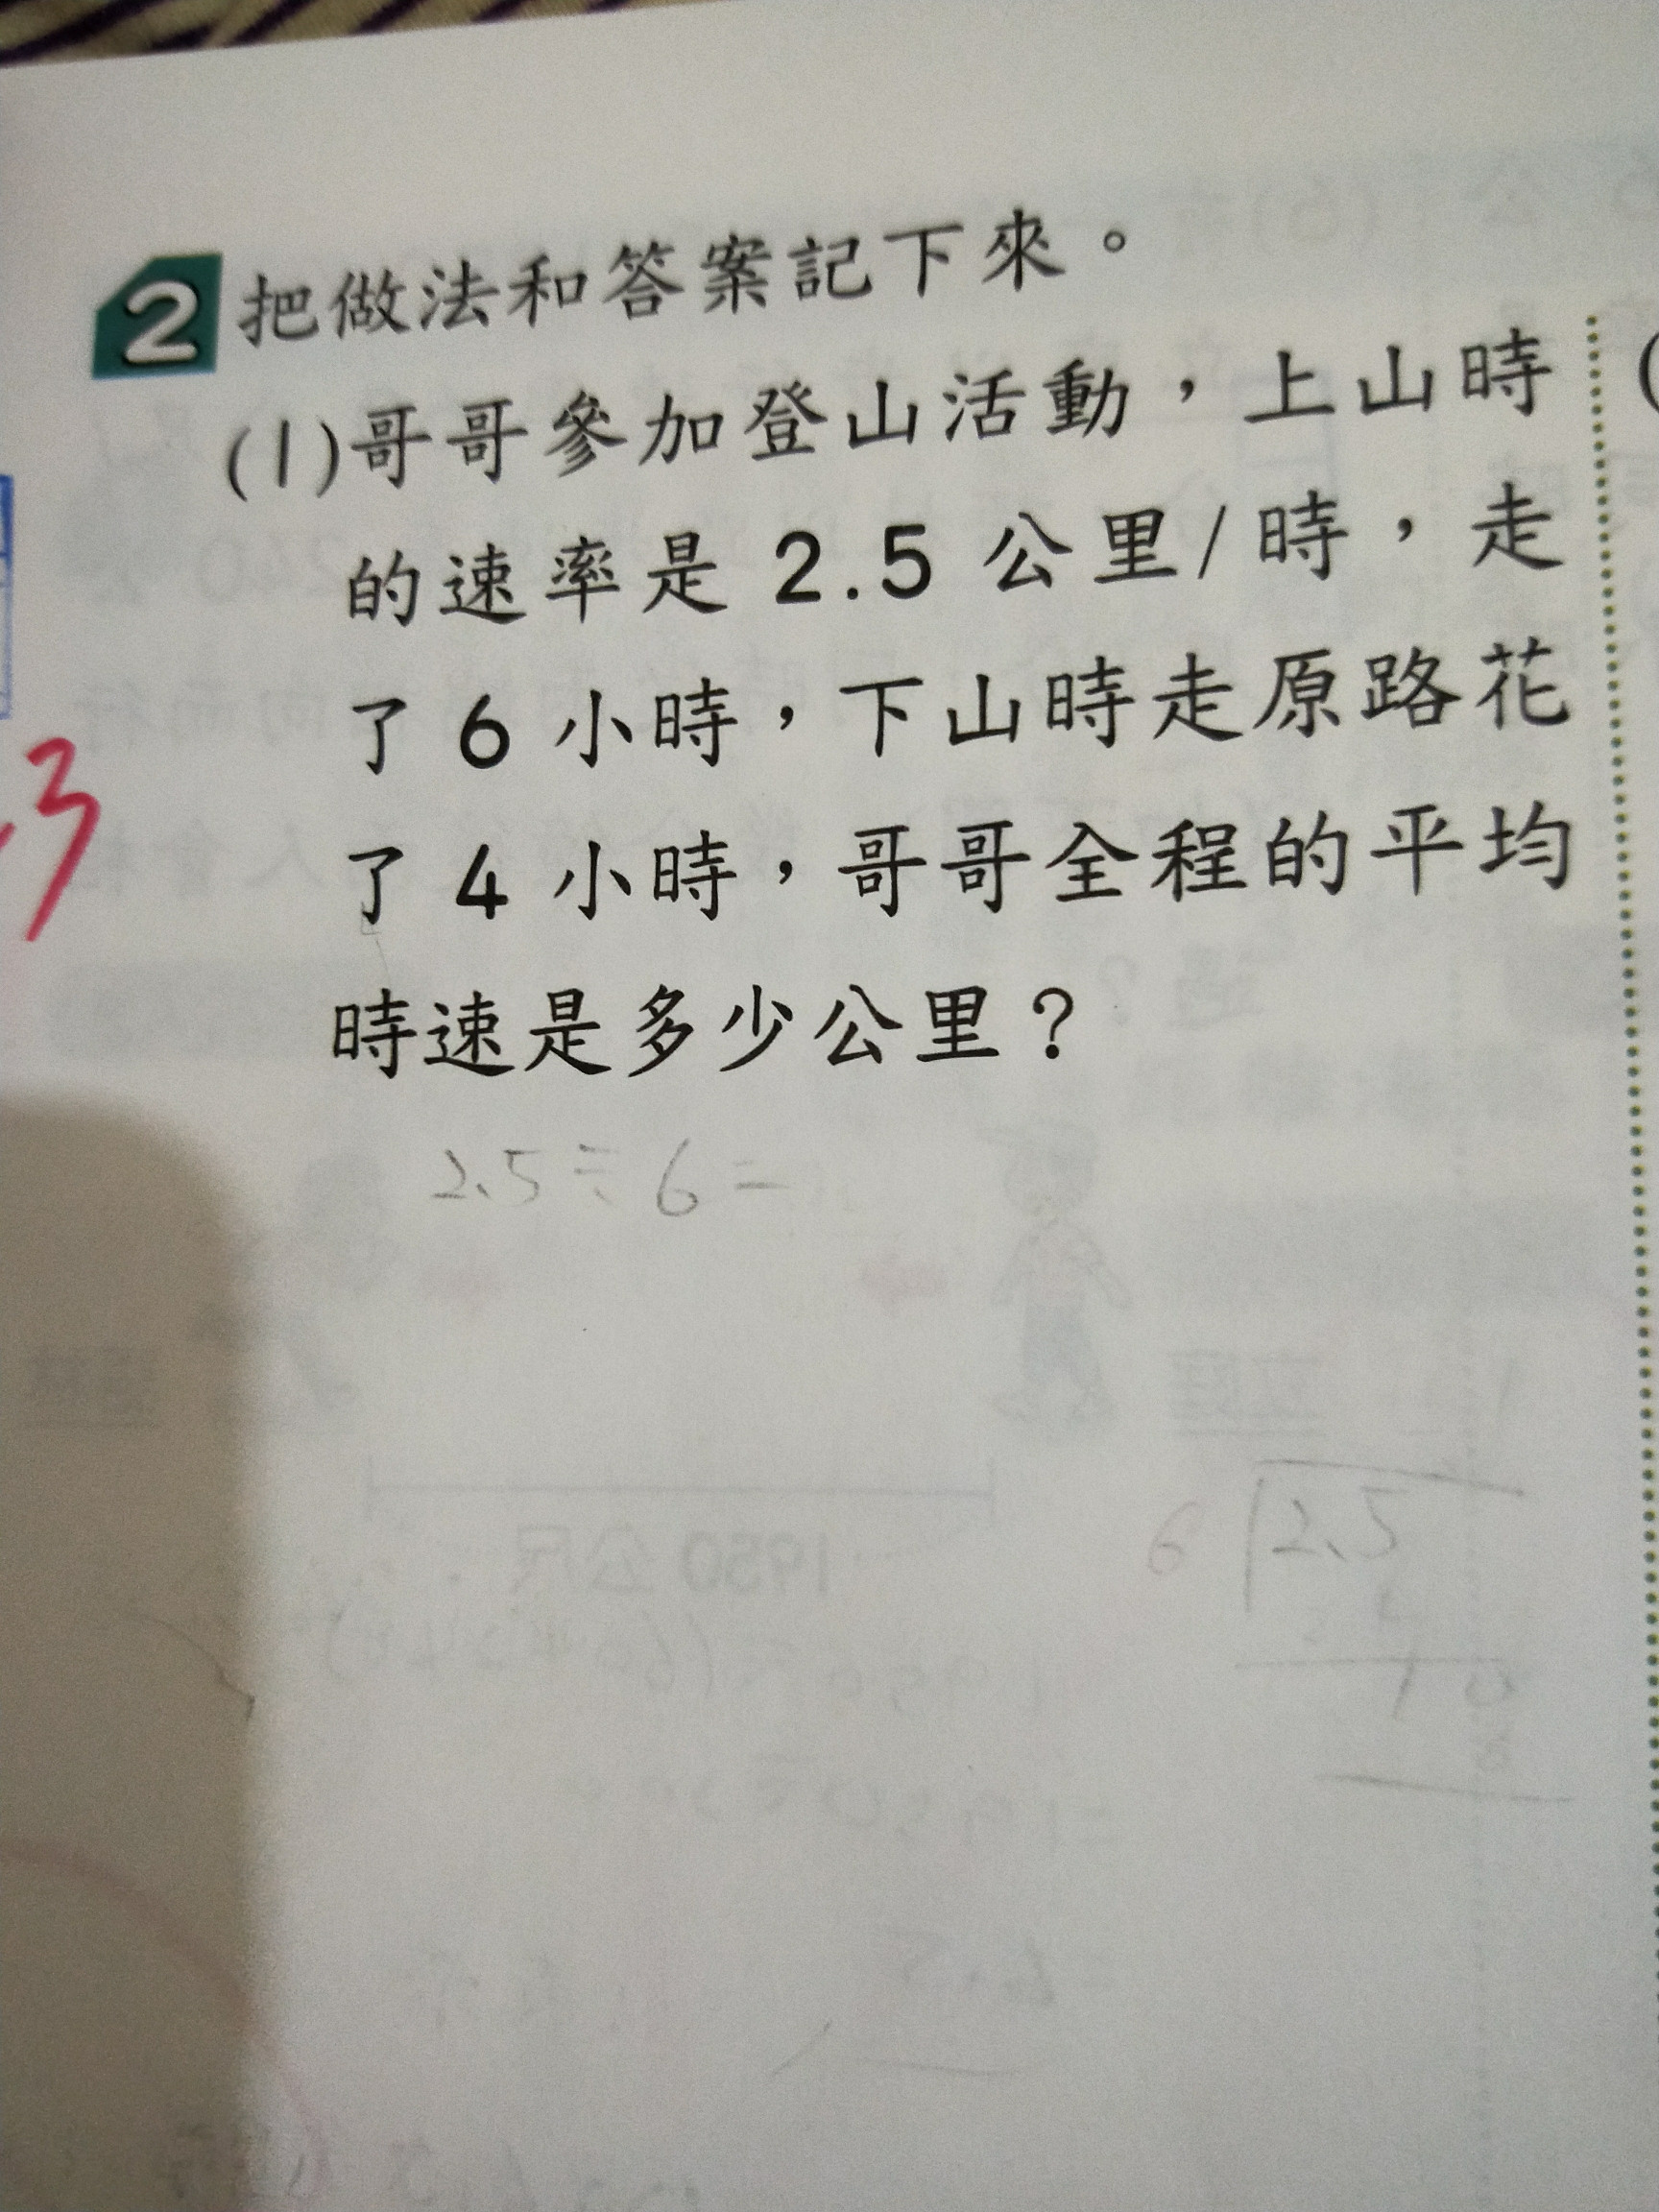 2 把做法和答案記下來。
(1)哥哥參加登山活動，上山時
的速率是 2.5 公里/時，走
了 6 小時，下山時走原路花
了 4 小時，哥哥全程的平均
時速是多少公里？
2.5÷6=
6 2.5
1 0
3
(